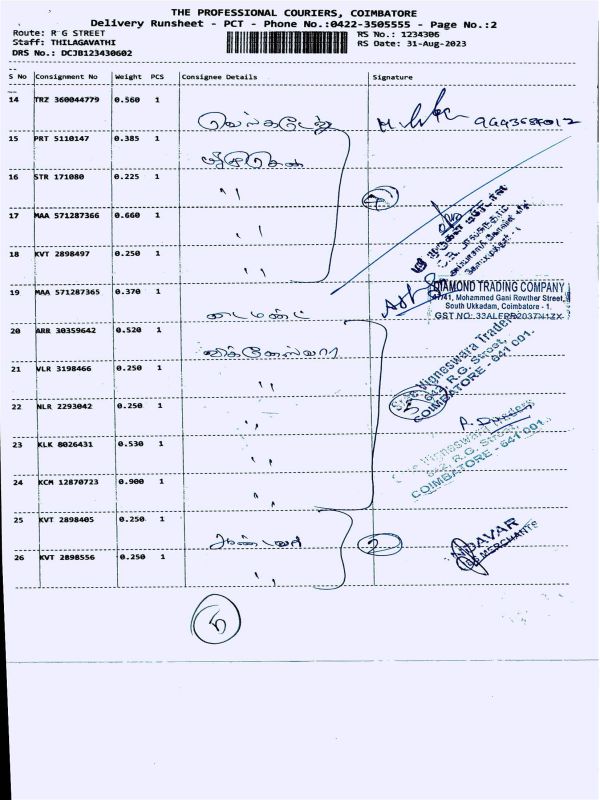 THE PROFESSIONAL COURIERS, COIMBATORE
Delivery Runsheet - PCT - Phone No.:0422-3505555 - Page No.:2
Route: R G STREET
RS No.: 1234306
Staff: THILAGAVATHI
RS Date: 31-Aug-2023
DRS No.: DCJB123430602
S No Consignment No Weight PCS Consignee Details Signature
14 TRZ 360044779 0.560 1 வெங்கடேஷ்
15 PRT 5110147 0.385 1
16 STR 171080 0.225 1 "
17 MAA 571287366 0.660 1 "
18 KVT 2898497 0.250 1 "
19 MAA 571287365 0.370 1 டைமண்ட்
DIAMOND TRADING COMPANY
47/41, Mohammed Gani Rowther Street,
South Ukkadam, Coimbatore - 1.
20 ARR 30359642 0.520 1 விக்னேஸ்வரா
21 VLR 3198466 0.250 1 "
Sree Vigneswara Traders
642, R.G. Street,
COIMBATORE - 641 001.
22 NLR 2293042 0.250 1 "
23 KLK 8026431 0.530 1 "
Sree Vigneswara Traders
642, R.G. Street,
COIMBATORE - 641 001.
24 KCM 12870723 0.900 1 "
25 KVT 2898405 0.250 1 2
26 KVT 2898556 0.250 1 "
MERCHANTS